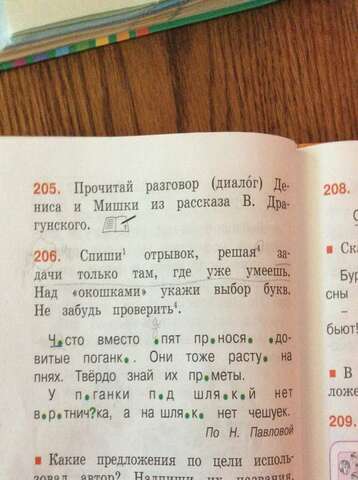 205. Прочитай разговор (диало́г) Де-
ниса и Мишки из рассказа В. Дра-
гунского.
206. Спиши¹ отрывок, решая⁴ за-
дачи только там, где уже умеешь.
Над «окошками» укажи выбор букв.
Не забудь проверить⁴.
Ч●сто вместо ●пят пр●нося● ●до-
витые поганк●. Они тоже расту● на
пнях. Твёрдо знай их пр●меты.
У п●ганки п●д шля●●й нет
в●р●тнич?ка, а на шля●● нет чешуек.
По Н. Павловой
■ Какие предложения по цели исполь-
зовал автор? Надпиши их названия.
208.
■ Ска
Бур
сны
–
бьют!
■ В
ложе
209.